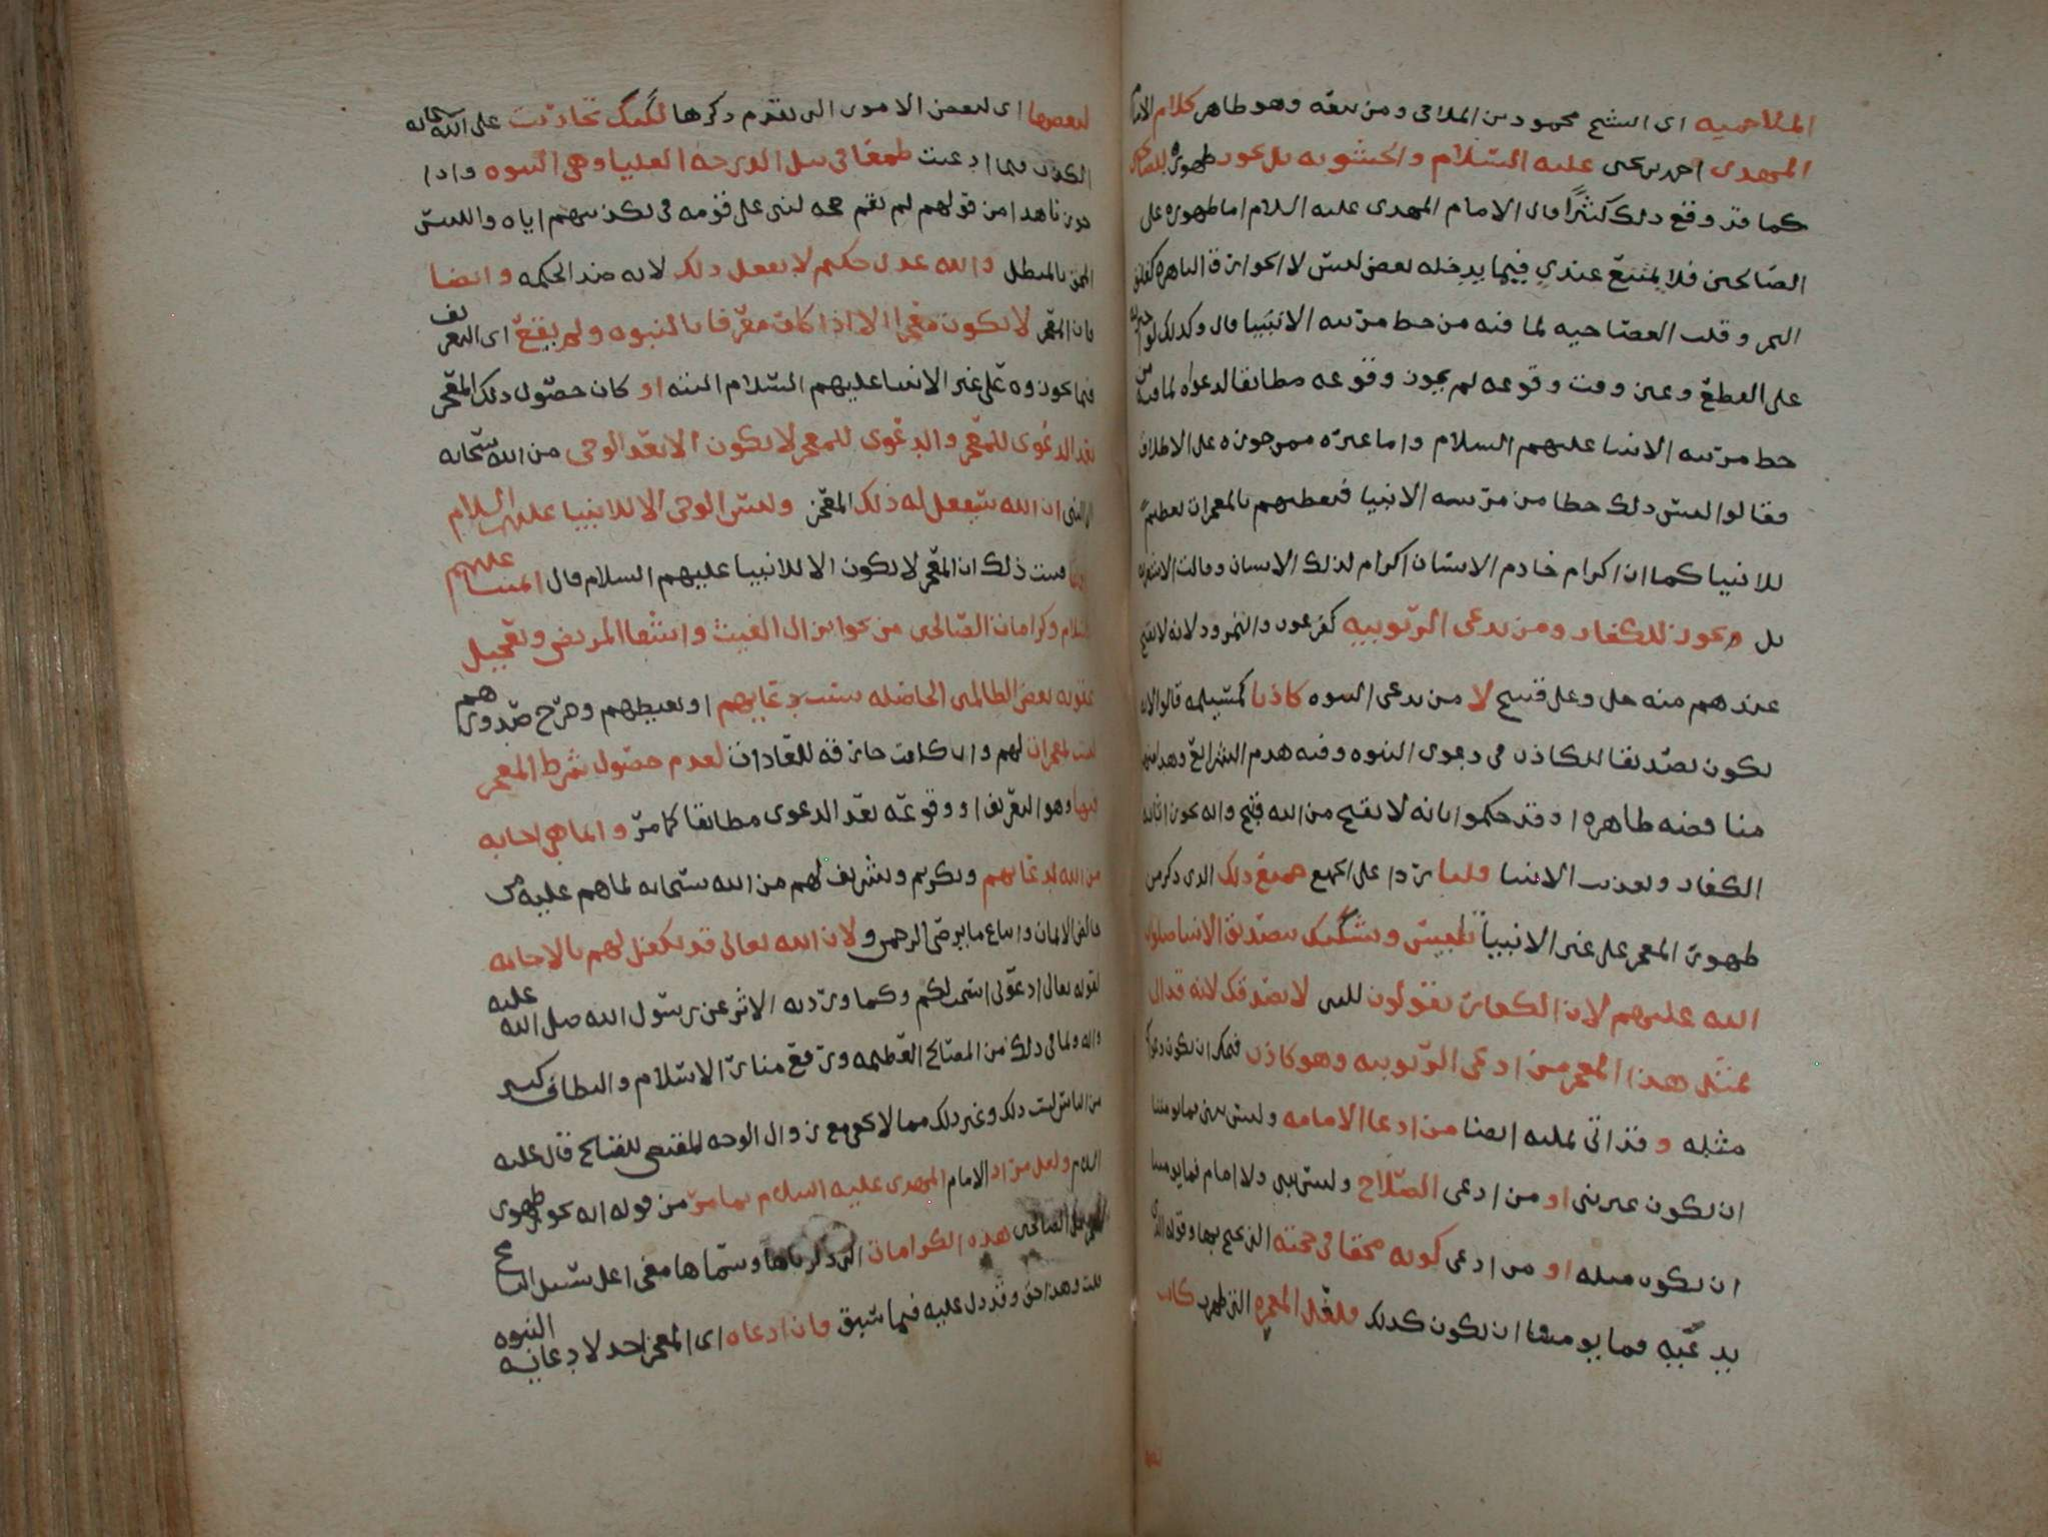 الملاحمية اي الشيخ محمود بن الملاحمي ومن تبعه وهو ظاهر كلام الامام
المهدي احمد بن يحيى عليه السلام والحشوية بل يجوز ظهوره
كما قد وقع ذلك كثيرًا قال الامام المهدي عليه السلام اما ظهوره على
الصالحين فلا يمتنع عندي فيما يدخله بعض لبس لا الخوارق الباهرة كفلق
البحر وقلب العصا حيه لما فيه من حط مرتبه الانبيا قال وكذلك لو اخبر
على القطع وعين وقت وقوعه لم يجوز وقوعه مطابقا لدعواه لما فيه من
حط مرتبه الانبيا عليهم السلام واما غيره ممن جوزه على الاطلاق
فقالوا ليس ذلك حطا من مرتبه الانبيا فتعظيمهم بالمعجزات تعظيم
للانبيا كما ان اكرام خادم الانسان اكرام لذلك الانسان وقالت الاشعريه
بل ويجوز للكفار ومن يدعي الربوبيه كفرعون والنمرود لانه لا يقبح
عندهم منه جل وعلى قبيح لا من يدعي النبوه كاذبا كمسيلمه قالوا لانه
يكون تصديقا للكاذب في دعوى النبوه وفيه هدم الشرائع وهذا منهم
مناقضه ظاهره اذ قد حكموا بانه لا يقبح من الله قبيح وانه يجوز اثابه
الكفار وتعذيب الانبيا قلنا ردا على الجميع جميع ذلك الذي ذكر من
ظهور المعجز على غير الانبيا تلبيس وتشكيك بتصديق الانبيا صلوات
الله عليهم لان الكفار يقولون للنبي لا نصدقك لانه قد اتى
بمثل هذا المعجز من ادعى الربوبيه وهو كاذب فيمكن ان يكون دعواك
مثله وقد اتى بمثله ايضا من ادعا الامامه وليس بنبي فما يومننا
ان تكون غير نبي او من ادعى الصلاح وليس بنبي ولا امام فما يومننا
ان تكون مثله او من ادعى كونه محقا في حجته التي يحتج بها وقوله الذي
يدعيه فما يومننا ان تكون كذلك فلعل المعجزه التي ظهرت كانت
لبعضها اي لبعض الامور التي تقدم ذكرها لكنك تجاريت على الله سبحانه
الكذب فيما ادعيت طمعا في نيل الدرجه العليا وهي النبوه واذا
جوزنا هذا من قولهم لم تقم حجه لنبي على قومه في تكذيبهم اياه والتبس
المحق بالمبطل والله عدل حكيم لا يفعل ذلك لانه ضد الحكمه وايضا
فان المعجز لا يكون معجزا الا اذا كان معرفا بالنبوه ولم يقع اي التعريف
فيما يجوزوه على غير الانبيا عليهم السلام البته او كان حصول ذلك المعجز
بعد الدعوى للمعجز والدعوى للمعجز لا يكون الا بعد الوحي من الله سبحانه
الى النبي ان الله سيفعل له ذلك المعجز وليس الوحي الا للانبيا عليهم السلام
فثبت ذلك ان المعجز لا يكون الا للانبيا عليهم السلام قال ائمتنا عليهم
السلام وكرامات الصالحين من نحو انزال الغيث واشفا المريض وتعجيل
عقوبه بعض الظالمين الحاصله بسبب دعايهم او تغيظهم وحرج صدورهم
ليست بمعجزات لهم وان كانت خارقه للعادات لعدم حصول شرط المعجز
فيها وهو التعريف او وقوعه بعد الدعوى مطابقا كما مر وانما هي اجابه
من الله لدعايهم وتكريم وتشريف لهم من الله سبحانه لما هم عليه من
خالص الايمان واتباع ما يرضي الرحمن ولان الله تعالى قد تكفل لهم بالاجابه
لقوله تعالى ادعوني استجب لكم وكما ورد به الاثر عن رسول الله صلى الله عليه
واله ولما في ذلك من المصالح العظيمه ورفع منار الاسلام والطاف كثير
من الناس ذلك وغير ذلك مما لا يخفى مع زوال الوجه المقتضي للقبائح قال عليه
السلام ولعل مراد الامام المهدي عليه السلام بما مر من قوله انه يجوز ظهور
المعجز على الصالحين هذه الكرامات التي ذكرناها وسماها معجزا على سبيل التسامح
قلت وهذا حق وقد دل عليه فيما سبق فان ادعاه اي المعجز احد لا دعايه النبوه